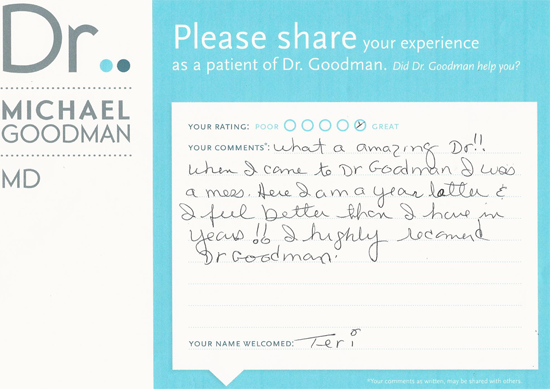 Dr..
MICHAEL
GOODMAN
MD
Please share your experience
as a patient of Dr. Goodman. Did Dr. Goodman help you?
YOUR RATING: POOR GREAT
YOUR COMMENTS*: What a amazing Dr!!
When I came to Dr Goodman I was
a mess. Here I am a year latter &
I ful better then I have in
years!! I highly recomend
Dr Goodman.
YOUR NAME WELCOMED: Teri
*Your comments as written, may be shared with others.